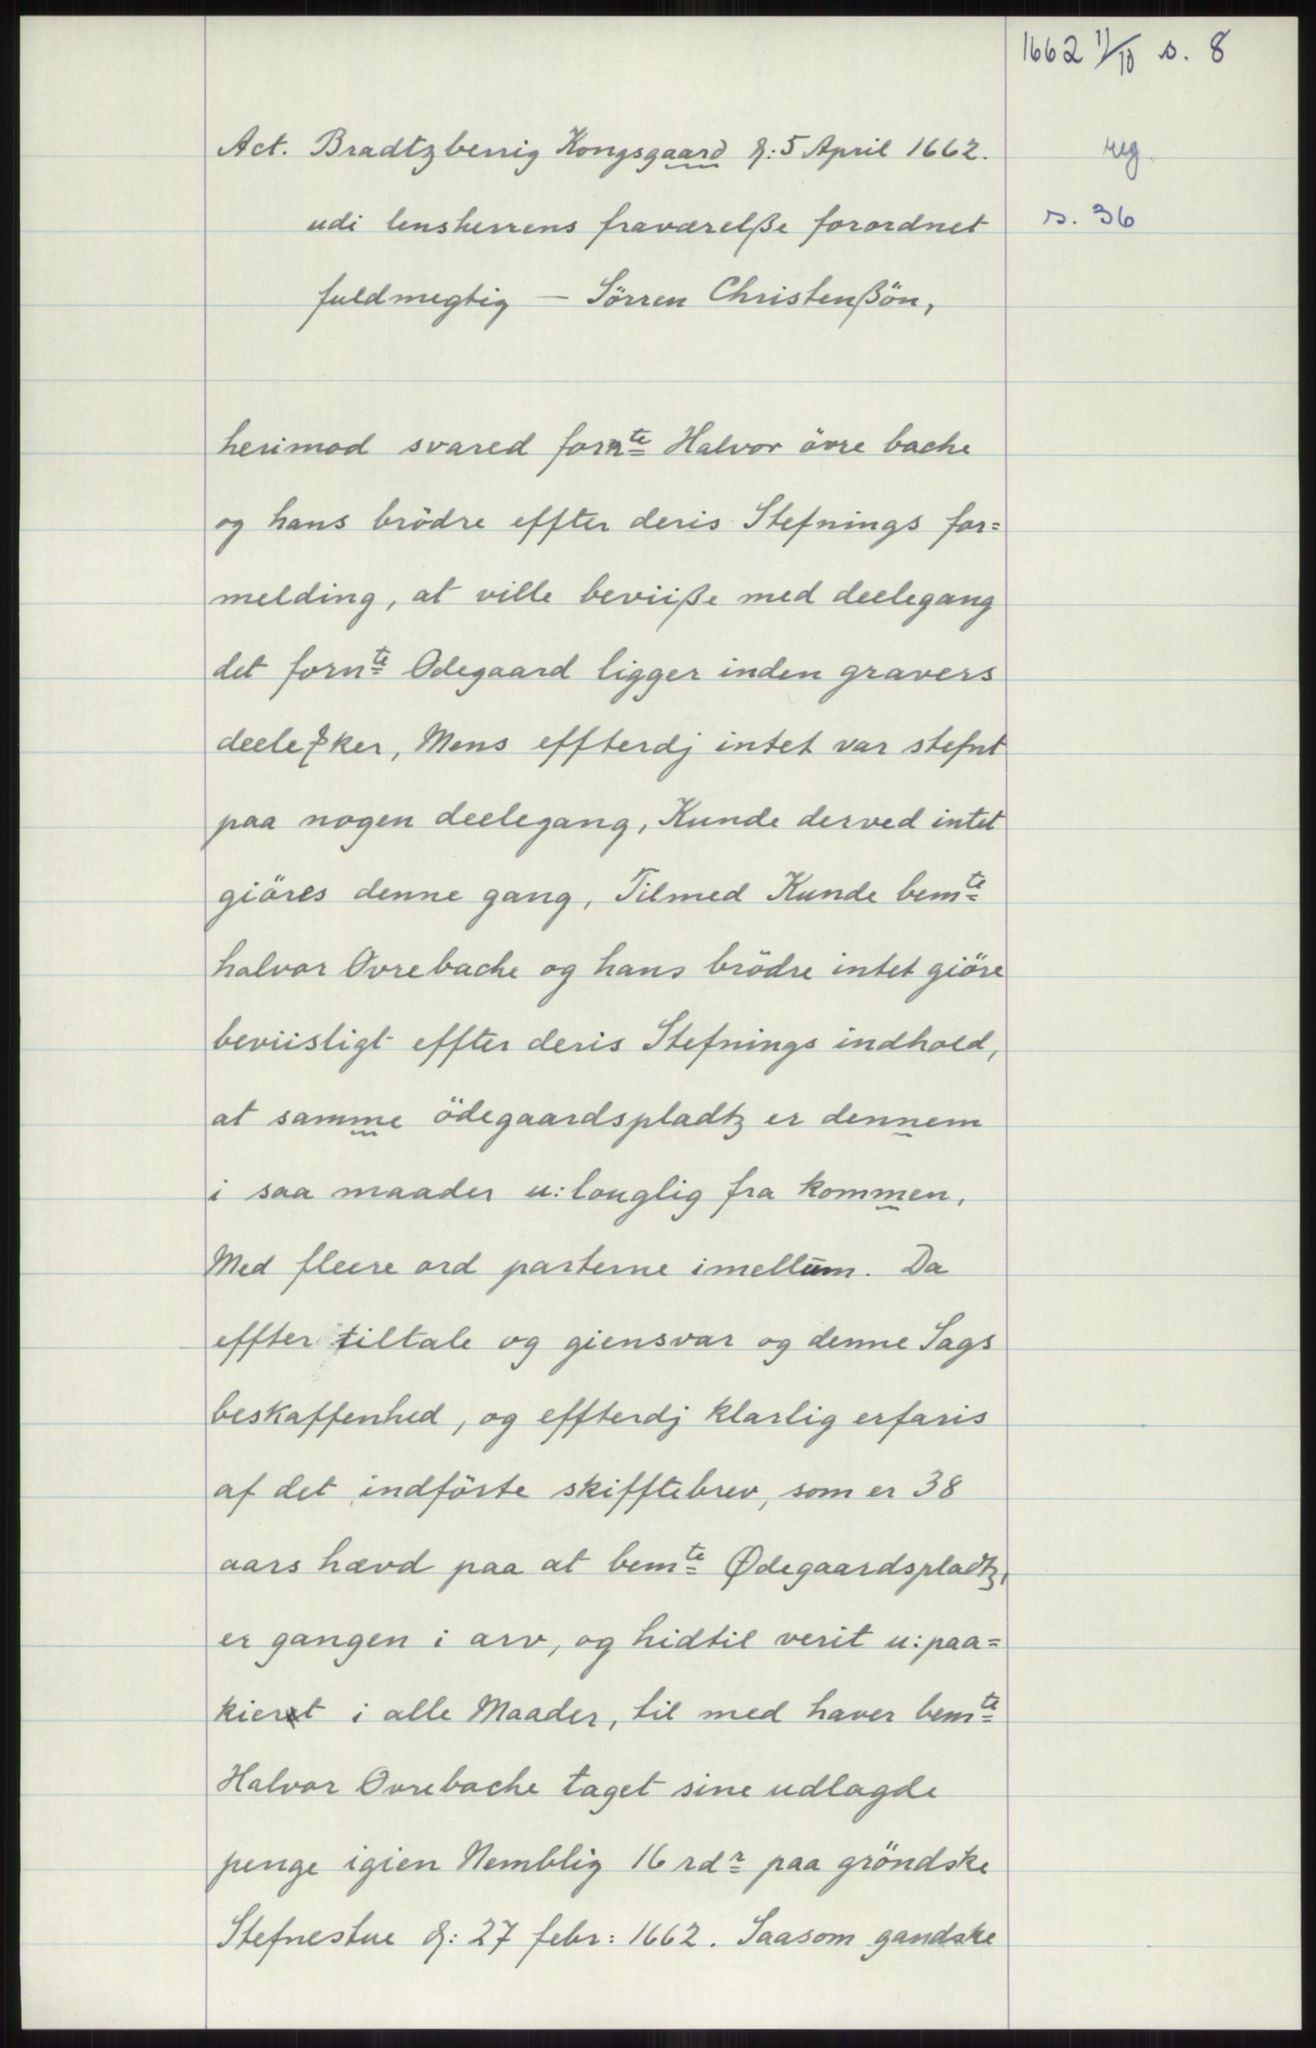 1662 11/10 s. 8
Act. Bradtzberrig Kongsgaard d: 5 April 1662.
reg.
udi lensherrens fraværelße forordnet
s. 36
fuldmegtig — Sörren Christenßön,
herimod svared fornte Halvor övre bache
og hans brödre effter deris Stefnings for=
melding, at ville beviiße med deelegang
det fornte Odegaard ligger inden gravers
deele ker, Mens effterdj intet var stefnt
paa nogen deelegang, Kunde derved intet
giöres denne gang, Tilmed Kunde bemte
halvor Ovrebache og hans brödre intet giöre
beviisligt effter deris Stefnings indhold,
at samme ödegaardspladtz er dennem
i saa maader u:louglig fra kommen,
Med fleere ord parterne imellum. Da
effter tiltale og giensvar og denne Sags
beskaffenhed, og effterdj klarlig erfaris
af det indförte skifftebrev, som er 38
aars hævd paa at bemte Ødegaardspladtz,
er gangen i arv, og hidtil verit u:paa=
kiert i alle Maader, til med haver bemte
Halvor Ovrebache taget sine udlagde
penge igien Nemblig 16 rdr paa gröndske
Stefnestue d: 27 febr: 1662. Saasom gandske